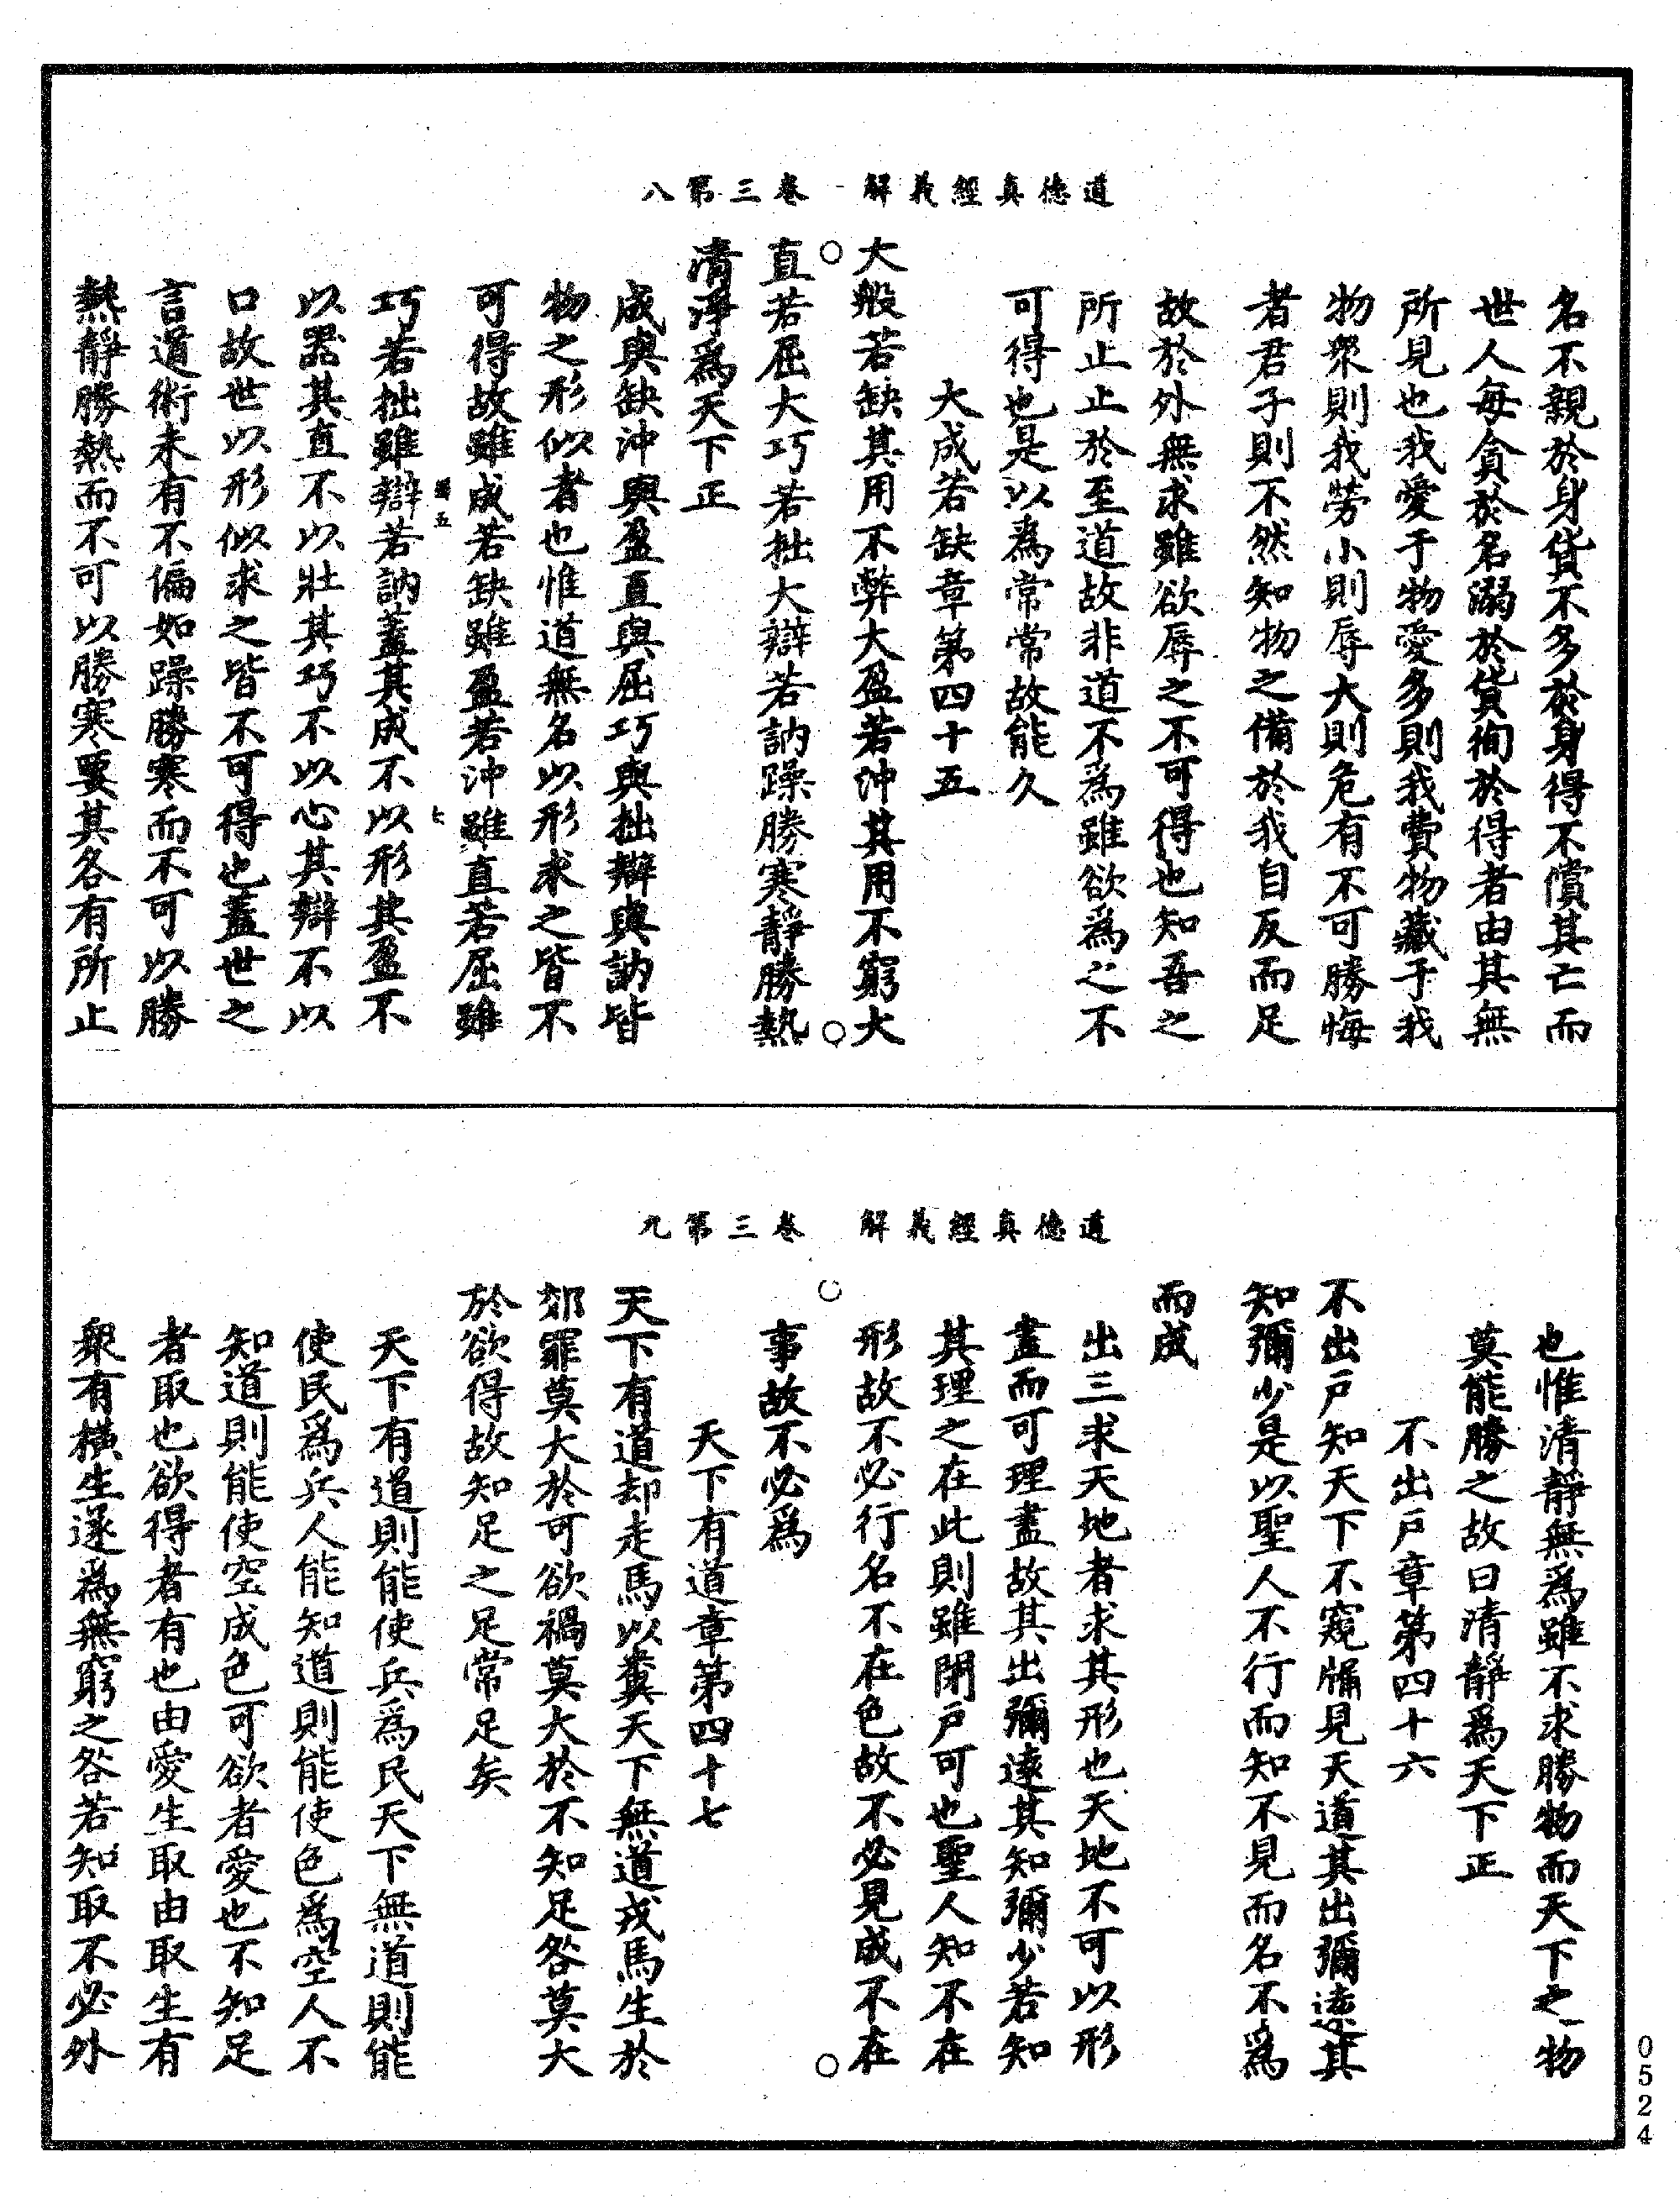 道德真經義解　卷三第八
名不親於身貨不多於身得不償其亡而
世人每貪於名溺於貨徇於得者由其無
所見也我愛于物愛多則我費物藏于我
物衆則我勞小則辱大則危有不可勝悔
者君子則不然知物之備於我自反而足
故於外無求雖欲辱之不可得也知吾之
所止止於至道故非道不為雖欲為之不
可得也是以為常常故能久
大成若缺章第四十五
大般若缺其用不弊大盈若沖其用不窮大
直若屈大巧若拙大辯若訥躁勝寒靜勝熱
清淨為天下正
成與缺沖與盈直與屈巧與拙辯與訥皆
物之形似者也惟道無名以形求之皆不
可得故雖成若缺雖盈若沖雖直若屈雖
巧若拙雖辯若訥蓋其成不以形其盈不
以器其直不以壯其巧不以心其辯不以
口故世以形似求之皆不可得也蓋世之
言道術未有不偏如躁勝寒而不可以勝
熱靜勝熱而不可以勝寒要其各有所止
道德真經義解　卷三第九
也惟清靜無為雖不求勝物而天下之物
莫能勝之故曰清靜為天下正
不出戶章第四十六
不出戶知天下不窺牖見天道其出彌遠其
知彌少是以聖人不行而知不見而名不為
而成
出三求天地者求其形也天地不可以形
盡而可理盡故其出彌遠其知彌少若知
其理之在此則雖閉戶可也聖人知不在
形故不必行名不在色故不必見成不在
事故不必為
天下有道章第四十七
天下有道却走馬以糞天下無道戎馬生於
郊罪莫大於可欲禍莫大於不知足咎莫大
於欲得故知足之足常足矣
天下有道則能使兵為民天下無道則能
使民為兵人能知道則能使色為空人不
知道則能使空成色可欲者愛也不知足
者取也欲得者有也由愛生取由取生有
衆有橫生遂為無窮之咎若知取不必外
0524